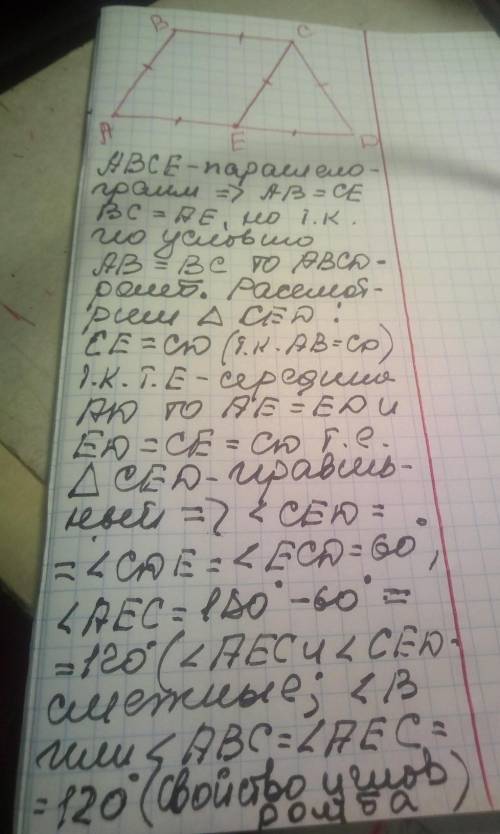 B C
A E D
ABCE-параллело-
грамм => AB=CE
BC=AE, но т.к.
по условию
AB=BC то ABCD-
ромб. Рассмот-
рим △ CED:
CE=CD (т.к. AB=CD)
т.к. т.E-середина
AD то AE=ED и
ED=CE=CD т.е.
△ CED-правиль-
ный => ∠CED=
=∠CDE=∠ECD=60°,
∠AEC=180°-60°=
=120° (∠AEC и ∠CED-
смежные; ∠B
или ∠ABC=∠AEC=
=120° (свойство углов
ромба)